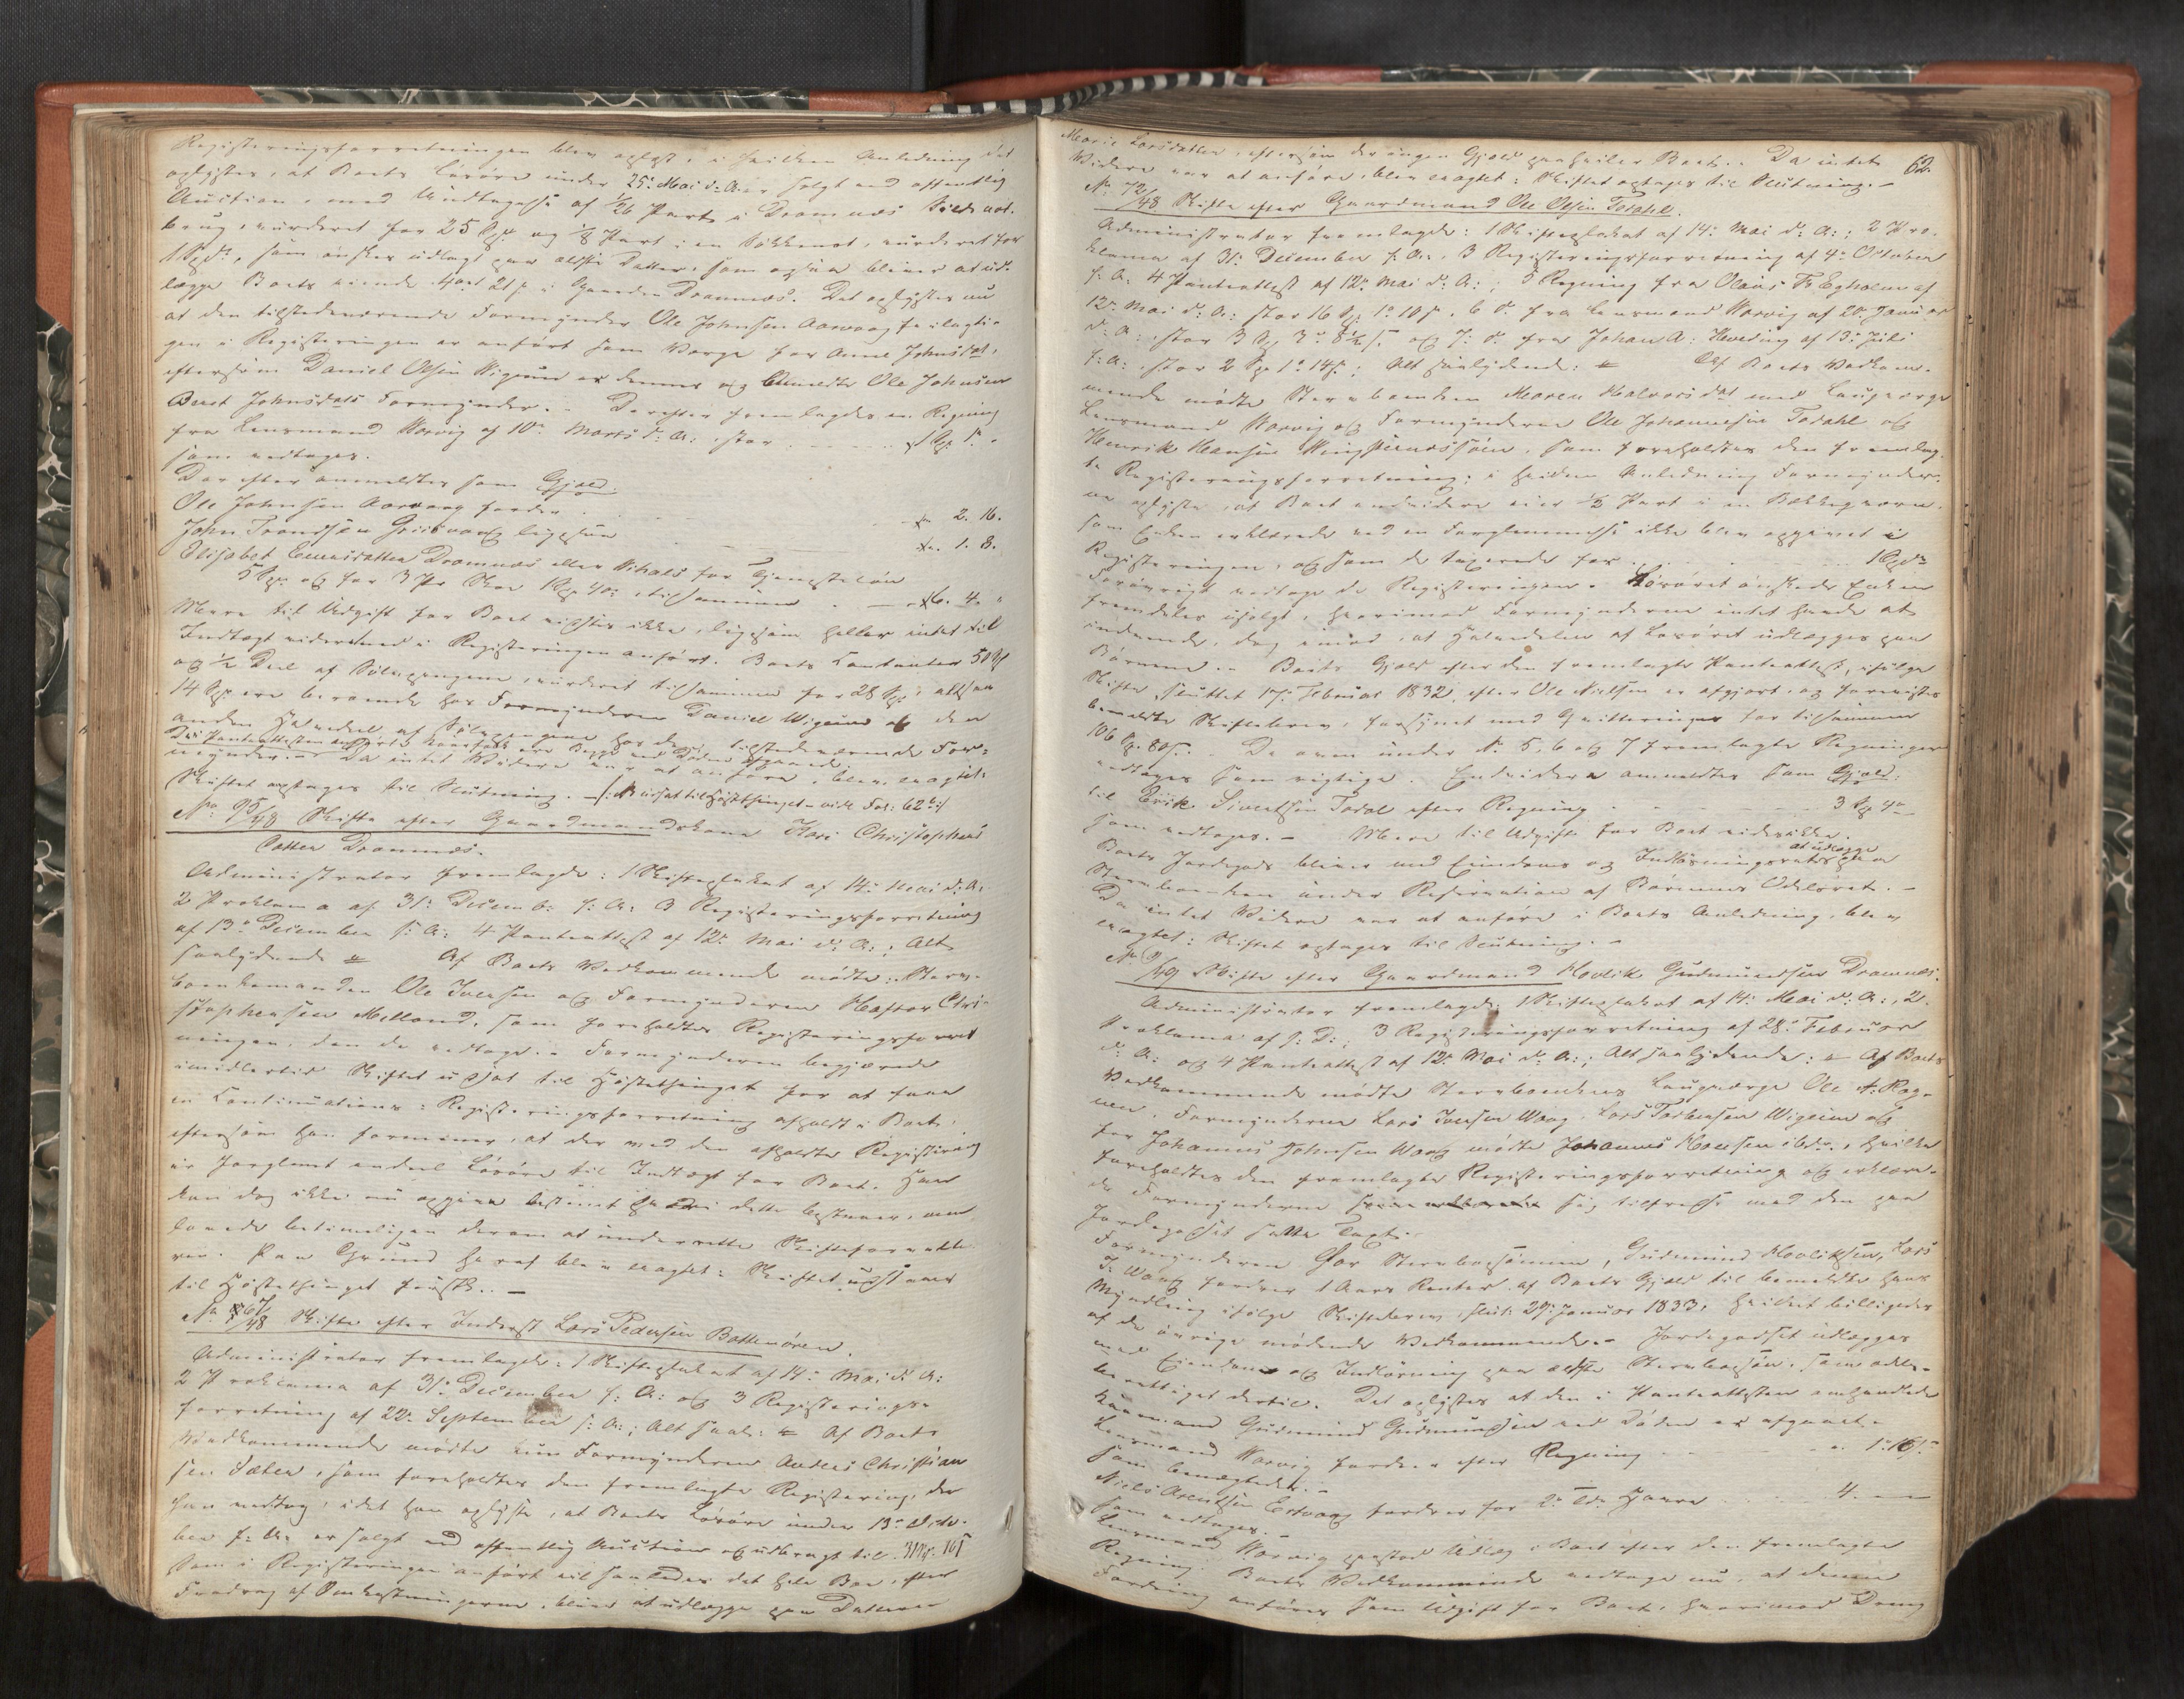 Registeringsforretningen blev oplæst, i hvilken Anledning det
oplystes, at Boets Løsøre under 25de Mai d: A: er solgt ved offentlig
Auction, med Undtagelse af 1/26 Part i Dromnæs Sildenot-
brug, vurderet for 25 Spd og 1/8 Part i en Søkkenot, vurderet for
1 Spd:, som ønskes udlagt paa ældste Datter, som ogsaa bliver at ud-
lægge Boets eiende 4 ort 21 s: i Gaarden Dromnæs. Det oplystes nu
at den tilstedeværende Formynder Ole Johnsen Aarvaag feilagti-
gen i Registeringen er anført som Værge for Anne Johnsdat,
eftersom Daniel Olsen Wigeum er dennes og bemeldte Ole Johnsen
Berit Johnsdats Formynder. Derefter fremlagdes en Regning
fra Lensmand Worvig af 10de Marts d: A:, stor 1 Sp:
som vedtoges.
Derefter anmeldtes som Gjæld.
Ole Johnsen Aarvaag fordrer 2. 16.
John Trondsen Griisvaag ligesaa 1. 8.
Elisabet Dromnæs eller for Tjenesteløn
5 Spd og for 3 Par Skoe 1 Sp: 4 ort, tilsammen 6. 4. "
Mere til Udgift for Boet vidstes ikke, ligesom heller intet til
Indtægt videre end i Registeringen anført. Boets Contanter
og 1/2 Deel af Sølvpengene, vurderet tilsammen for 28 Sp:, altsaa
14 Sp: ere beroende hos Formynderen Daniel Wigeum og den
anden Halvdeel af Sølvpengene hos den tilstedeværende For-
mynder. Da intet Videre var at anføre, blev eragtet:
Skiftet optages til Slutning. – /: udsat til Høstthinget – vide Fol: 62 :/
No 95/48 Skifte efter Gaardmandskone Kari Christophers
Datter Dromnæs.
Administrator fremlagde: 1 Skifteplakat af 14de Mai d: A:
2 Proklama af 31: Decemb: f: A: 3 Registeringsforretning
af 13de December f: A: 4 Panteattest af 12te Mai d: A:; Alt
saalydende Af Boets Vedkommende mødte: Sterv-
boenkemanden Ole Iversen og Formynderen Christ-
ophersen Melland, som foreholdtes Registeringsforret-
ningen, den de vedtoge. Formynderen begjærede
imidlertid Skiftet udsat til Høstethinget for at faae
en Continuations-Registeringsforretning afholdt i Boet,
eftersom han formener, at der ved den afholdte Registering
er forglemt endeel Løsøre til Indtægt for Boet. Han
kan dog ikke nu opgive bestemt hvori dette bestaaer, men
lovede betimeligen derom at underrette Skifteforvalte-
ren. Paa Grund heraf blev eragtet: Skiftet udstaaer
til Høstethinget førstk. –
No 67/48 Skifte efter Inderst Lars Pedersen Bottenøren.
Administrator fremlagde: 1 Skifteplakat af 14: Mai d: A:
2 Proklama af 31: December f: A: og 3 Registerings-
forretning af 22: September f: A:; Alt saal: Af Boets
Vedkommende mødte kun Formynderen Anders Christian-
sen Sæter, som foreholdtes den fremlagte Registering, der
han vedtog, idet han oplyste, at Boets Løsøre under 13de Octo-
ber f: A: er solgt ved offentlig Auction og udbragt til
som i Registeringen anført vil saaledes det hele Boe, efter
Fradrag af Omkostningerne, blive at udlægge paa Datteren
62.
Marie Larsdatter, eftersom der ingen Gjæld paahviler Boet. Da intet
Videre var at anføre, blev eragtet: Skiftet optages til Slutning. –
No 72/48 Skifte efter Gaardmand Ole Olsen Todahl.
Administrator fremlagde: 1 Skifteplakat af 14: Mai d: A:; 2 Pro-
klama af 31: December f: A:, 3 Registeringsforretning af 4: October
f: A: 4 Panteattest af 12te Mai d: A:; 5 Regning fra Olaus Fr Egholm af
12te Mai d: A: stor 16 Sp: 1 ort 10 s:, 6 do: fra Lensmand Worvig af 20: Januar
d: A: stor 3 Sp: 3 ort 8 1/2 s: og 7: do: fra Johan A: af 13: Juli
f: A:, stor 2 Sp: 1 ort 14 s:; Alt saalydende: Af Boets Vedkom-
mende mødte Stervboenken Maren Halvorsdat med Laugværge
Lensmand Worvig og Formynderen Ole Johannesen Todahl og
Henrik Hansen, som foreholdtes den fremlag-
te Registeringsforretning, i hvilken Anledning Formynder-
ne oplyste, at Boet endvidere eier 1/2 Part i en Bækkeqværn,
som Enken erklærede ved en Forglemmelse ikke blev opgivet i
Registeringen, og som de taxerede for 1 Spd:
Forøvrigt vedtoge de Registeringen. Løsøret ønskede Enken
fremdeles usolgt, hvorimod Formynderne intet havde at
indvende, dog imod, at Halvdelen af Løsøret udlægges paa
Børnene. Boets Gjæld efter den fremlagte Panteattest, ifølge
Skifte, sluttet 17: Februar 1832, efter Ole Nielsen er afgjort, og forevistes
bemeldte Skiftebrev, forsynet med Qvitteringer for tilsammen
106 Sp: 80 s:. De oven under No 5, 6 og 7 fremlagte Regninger
vedtoges som rigtige. Endvidere anmeldtes som Gjæld:
til Erik Sivertsen Todal efter Regning 3 Sp: 4 ort
som vedtoges. – Mere til Udgift for Boet vides ikke.
Boets Jordegods bliver med Eiendoms og Indløsningsret at udlægge paa
Stervboenken under Reservation af Børnenes Odelsret. –
Da intet Videre var at anføre i Boets Anledning, blev
eragtet: Skiftet optages til Slutning. –
No 9/49 Skifte efter Gaardmand Hovlik Gudmundsen Dromnæs.
Administrator fremlagde: 1 Skifteplakat af 14: Mai d: A:, 2
Proklama af s: D:; 3 Registeringsforretning af 28: Februar
d: A: og 4 Panteattest af 12te Mai d: A:; Alt saalydende: Af Boets
Vedkommende mødte Stervboenkens Laugværge Ole
, Formynderne Lars Iversen Waag, Lars Torbersen Wigeum og
for Johannes Johnsen Waag mødte Johannes ibd:, hvilke
foreholdtes den fremlagte Registeringsforretning og erklære-
de Formynderne sig tilfreds med den paa
Jordegodset satte Taxt.
Formynderen for Stervboesønnen, Gudmund Hovliksen, Lars
I: Waag fordrer 1 Aars Renter af Boets Gjæld til bemeldte hans
Myndling ifølge Skiftebrev, slut: 29: Januar 1833, hvilket billigedes
af de øvrige mødende Vedkommende. Jordegodset udlægges
med Eiendoms og Indløsning paa ældste Stervboesøn, som odels-
berettiget dertil. Det oplystes at den i Panteattesten omhandlede
Kaarmand Gudmund Gudmundsen ved Døden er afgaaet.
Lensmand Worvig fordrer efter Regning 1. 16.
som benægtedes. –
Niels Arentsen Ertvaag fordrer for 2: Td: Havre 4. –
som vedtoges. –
Lensmand Worvig paastod Udlæg i Boet efter den fremlagte
Regning. Boets Vedkommende vedtoge nu, at denne
Fordring anføres som Udgift for Boet, hvorimod